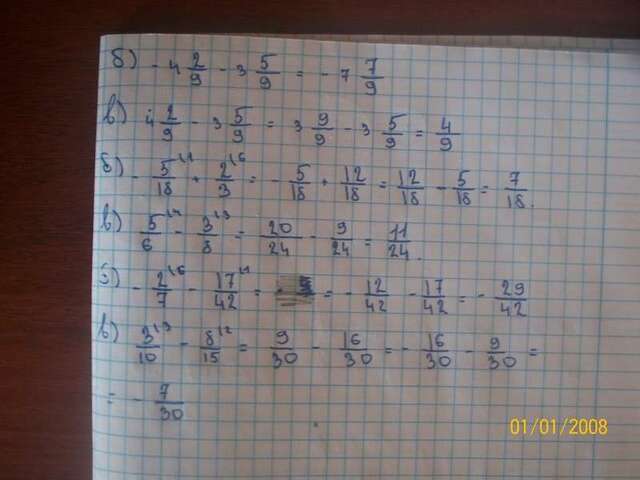 б) - 4 2/9 - 3 5/9 = - 7 7/9
в) 4 2/9 - 3 5/9 = 3 9/9 - 3 5/9 = 4/9
б) - 5/18 \1 + 2/3 \6 = - 5/18 + 12/18 = 12/18 - 5/18 = 7/18.
в) 5/6 \4 - 3/8 \3 = 20/24 - 9/24 = 11/24.
б) - 2/7 \6 - 17/42 \1 = = - 12/42 - 17/42 = - 29/42
в) 3/10 \3 - 8/15 \2 = 9/30 - 16/30 = - 16/30 - 9/30 =
= - 7/30
01/01/2008